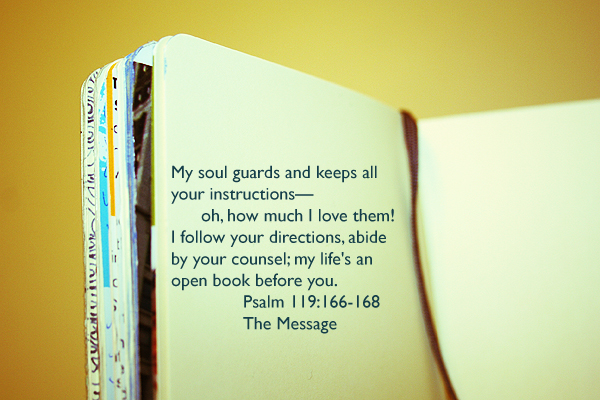 My soul guards and keeps all
your instructions—
oh, how much I love them!
I follow your directions, abide
by your counsel; my life's an
open book before you.
Psalm 119:166-168
The Message